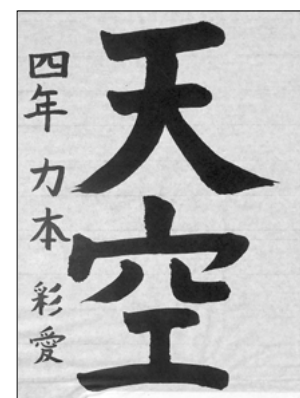 天空
四年 力本 彩愛